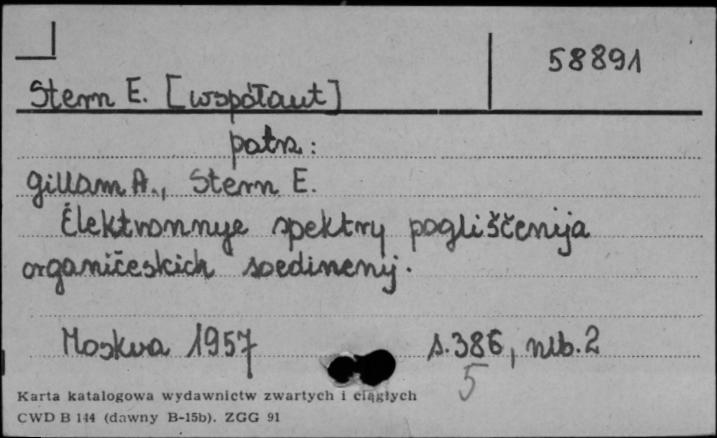 58891
Stern E. [współaut]
patrz:
Gillam A., Stern E.
Èlektronnye spektry pogliščenija
organičeskich soedinenij.
Moskva 1957 s.386, nlb.2
5
Karta katalogowa wydawnictw zwartych i ciągłych
CWD B 144 (dawny B-15b). ZGG 91